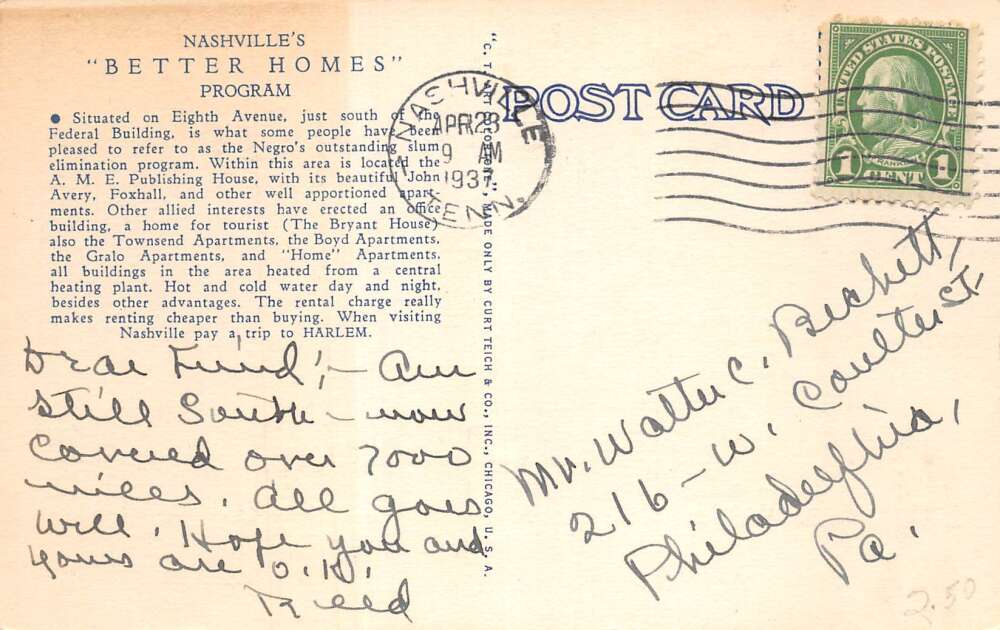 NASHVILLE'S
"BETTER HOMES"
PROGRAM
● Situated on Eighth Avenue, just south of the
Federal Building, is what some people have been
pleased to refer to as the Negro's outstanding slum
elimination program. Within this area is located the
A. M. E. Publishing House, with its beautiful John
Avery, Foxhall, and other well apportioned apart-
ments. Other allied interests have erected an office
building, a home for tourist (The Bryant House)
also the Townsend Apartments, the Boyd Apartments,
the Gralo Apartments, and "Home" Apartments.
all buildings in the area heated from a central
heating plant. Hot and cold water day and night,
besides other advantages. The rental charge really
makes renting cheaper than buying. When visiting
Nashville pay a trip to HARLEM.
Dear Friend;- Am
still South - now
covered over 7000
miles. All goes
well. Hope you and
yours are O.K.
Reed
"C. T. ART-COLORTONE", MADE ONLY BY CURT TEICH & CO., INC., CHICAGO, U. S. A.
POST CARD
NASHVILLE
APR 23
9 AM
1937
TENN.
UNITED STATES POSTAGE
FRANKLIN
1 CENT 1
Mr. Walter C. Beckett,
216 - W. Coulter St.
Philadelphia,
Pa.
2.50